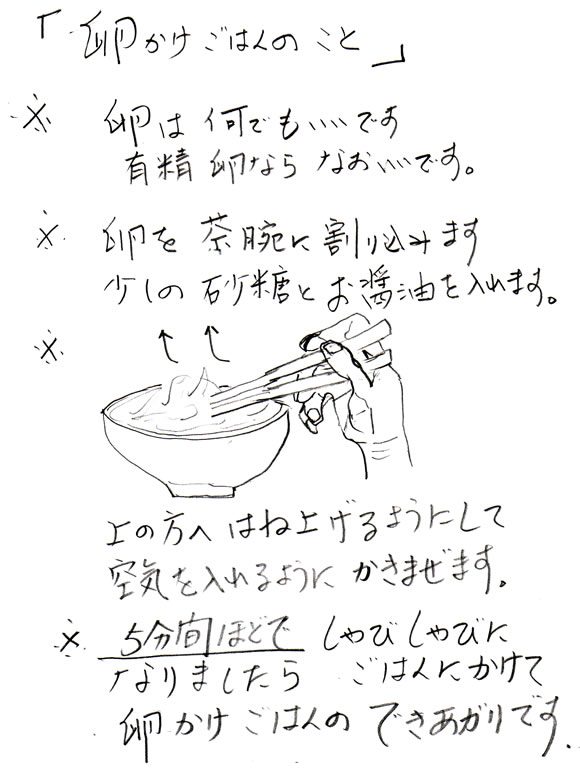 「卵かけごはんのこと」
※ 卵は何でもいいです
有精卵ならなおいいです。
※ 卵を茶腕に割り込みます
少しの砂糖とお醤油を入れます。
※
上の方へはね上げるようにして
空気を入れるようにかきまぜます。
※ 5分間ほどでしゃびしゃびに
なりましたら ごはんにかけて
卵かけごはんのできあがりです.